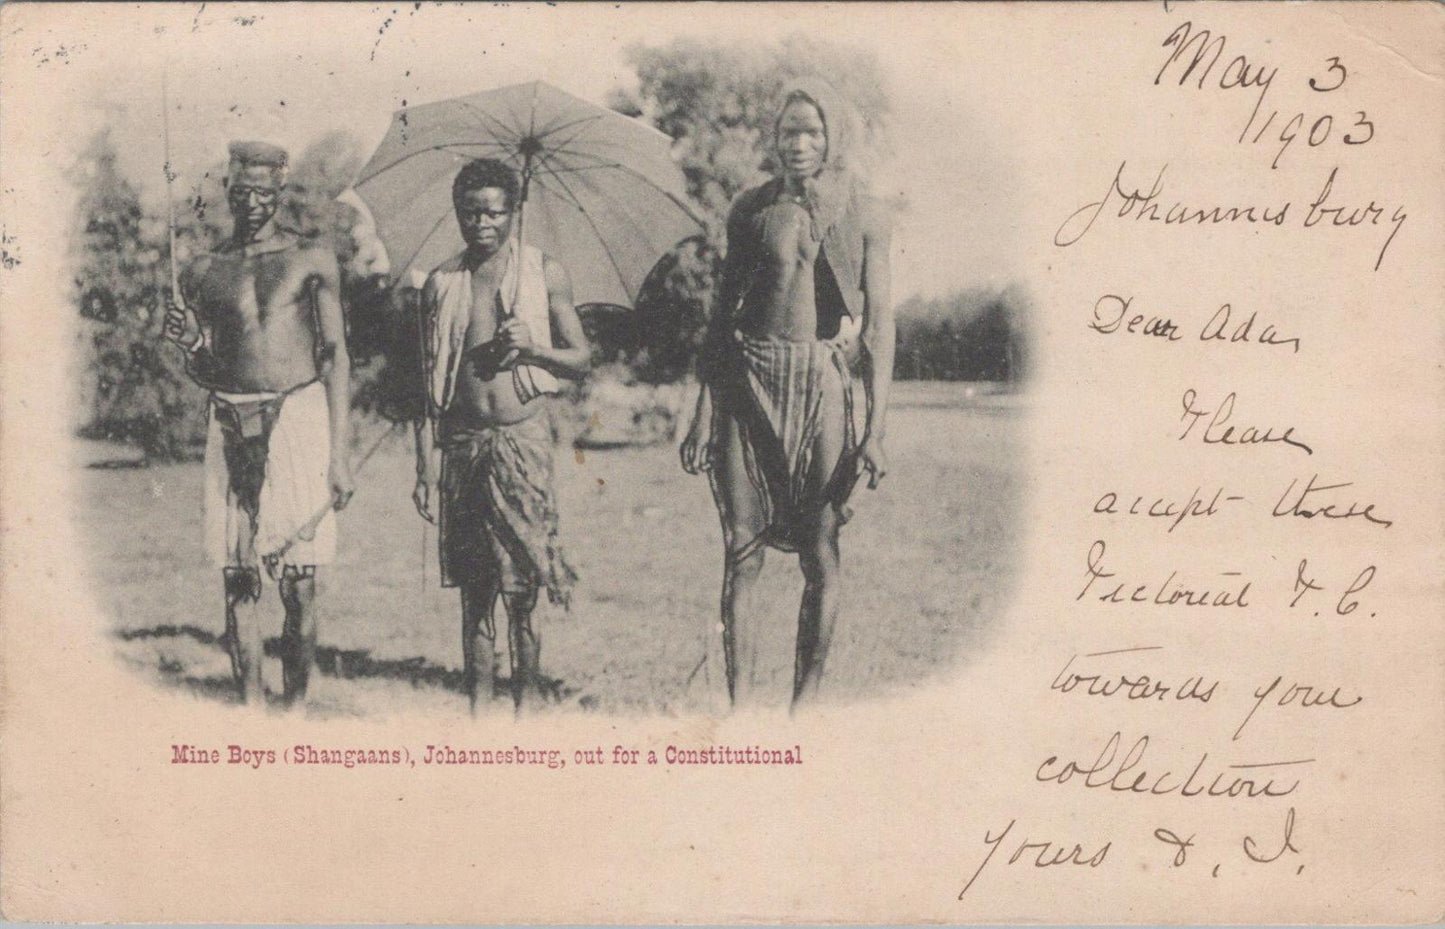 May 3
1903
Johannesburg
Dear Ada,
Please
accept these
Pictorial P.C.
towards your
collection
yours
Mine Boys (Shangaans), Johannesburg, out for a Constitutional